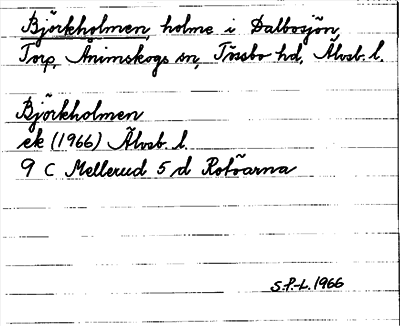 Björkholmen, holme i Dalbosjön,
Torp, Ånimskogs sn, Tössbo hd, Älvsb. l.
Björkholmen
ek (1966) Älvsb. l.
9 C Mellerud 5 d Rotöarna
S.P-L. 1966